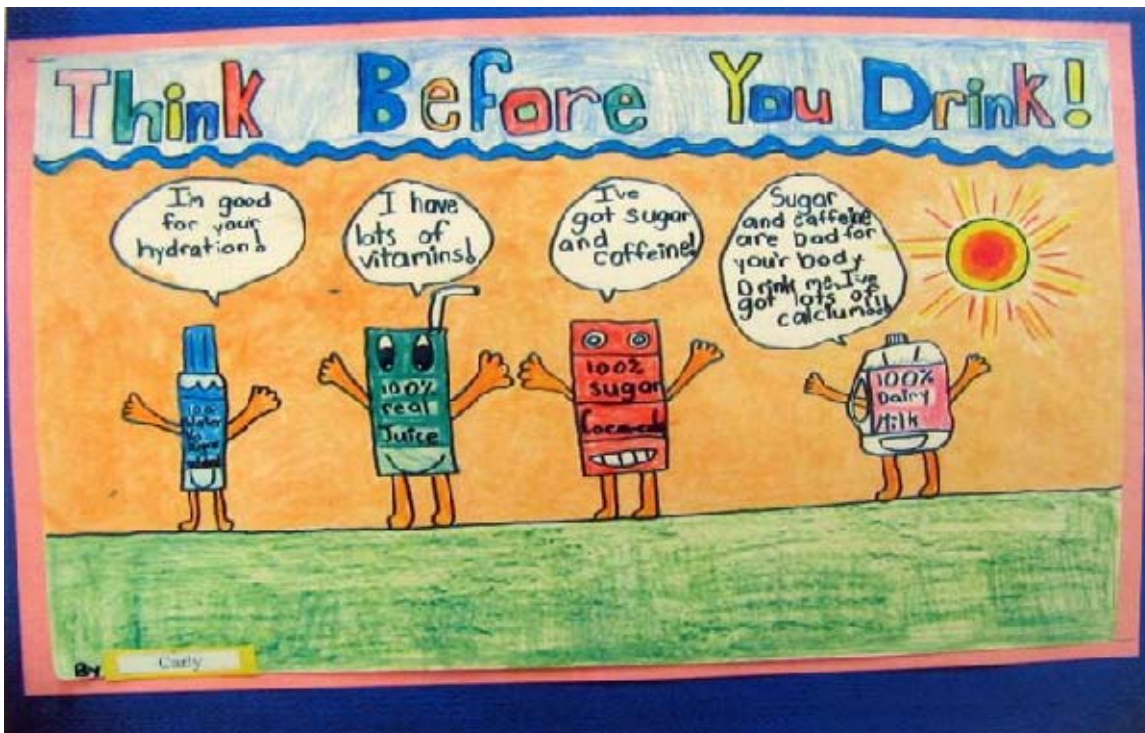 Think Before You Drink!
I'm good
for your
hydration!
I have
lots of
vitamins!
I've
got sugar
and
caffeine!
Sugar
and caffeine
are bad for
your body
Drink me, I've
got lots of
calcium
100%
real
Juice
100%
sugar
100%
Dairy
Milk
By Carly